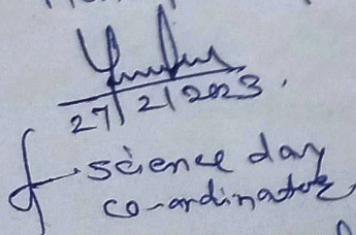 27/2/2023.
science day
co-ordinator,